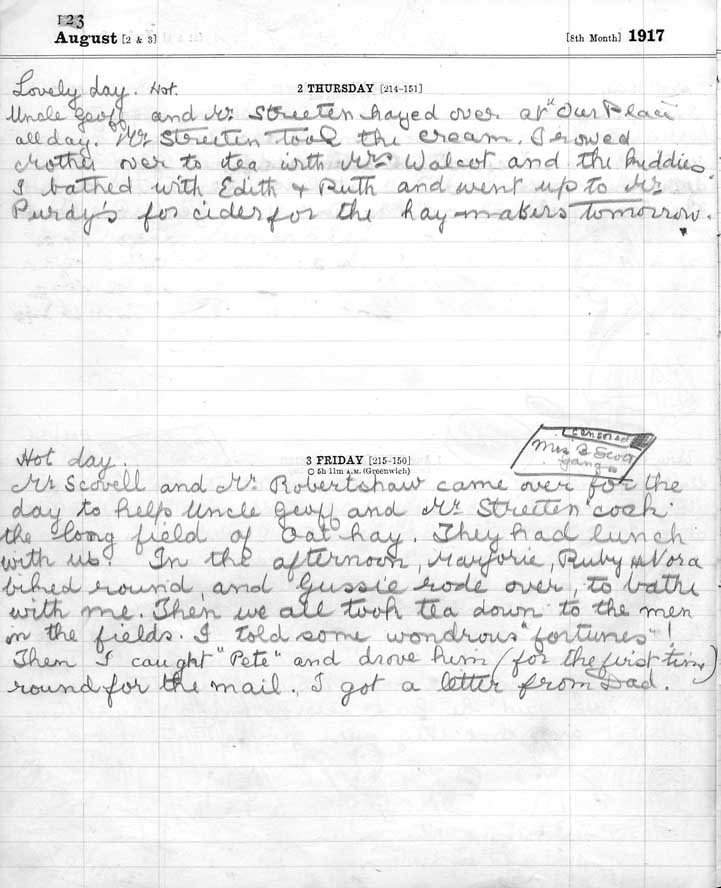 123
August [2 & 3] [8th Month] 1917
Lovely day. Hot. 2 THURSDAY [214-151]
Uncle Geoff and Mr. Streeten hayed over at "Our Place"
all day. Mr Streeten took the cream. I rowed
Mother over to tea with Mrs Walcot and the kiddies.
I bathed with Edith & Ruth and went up to Mr.
Purdy's for cider for the hay-makers tomorrow.
censored
Mrs B Scott
gang
Hot day. 3 FRIDAY [215-150]
5h 11m A.M. (Greenwich)
Mr Scovell and Mr. Robertshaw came over for the
day to help Uncle Geoff and Mr Streeten cock
the long field of Oat hay. They had lunch
with us. In the afternoon, Marjorie, Ruby & Nora
biked round, and Gussie rode over, to bathe
with me. Then we all took tea down to the men
in the fields. I told some wondrous "fortunes"!
Then I caught "Pete" and drove him (for the first time)
round for the mail. I got a letter from Dad.